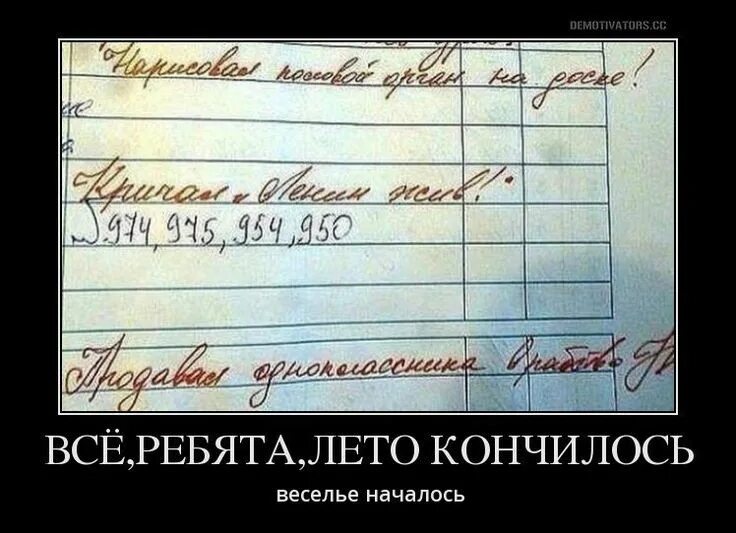 DEMOTIVATORS.CC
"Нарисовал половой орган на доске!
Кричал „Ленин жив!"
974, 975, 954, 950
Продавал одноклассника в рабство
ВСЁ,РЕБЯТА,ЛЕТО КОНЧИЛОСЬ
веселье началось